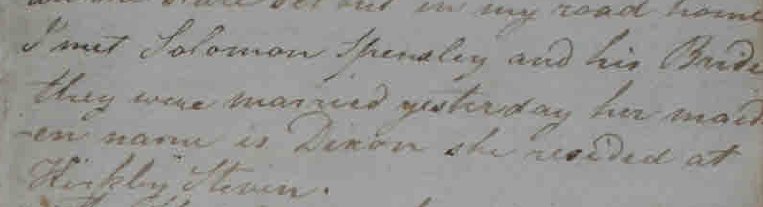 set out in my road home
I met Solomon Spensley and his Bride
they were married yesterday her maid
-en name is Dixon she resided at
Kirkby Steven.